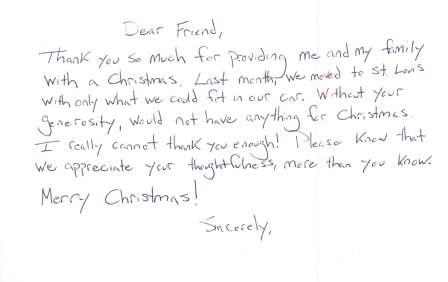 Dear Friend,
Thank you so much for providing me and my family
with a Christmas. Last month, we moved to St. Louis
with only what we could fit in our car. Without your
generosity, would not have anything for Christmas.
I really cannot thank you enough! Please know that
we appreciate your thoughtfulness, more than you know.
Merry Christmas!
Sincerely,